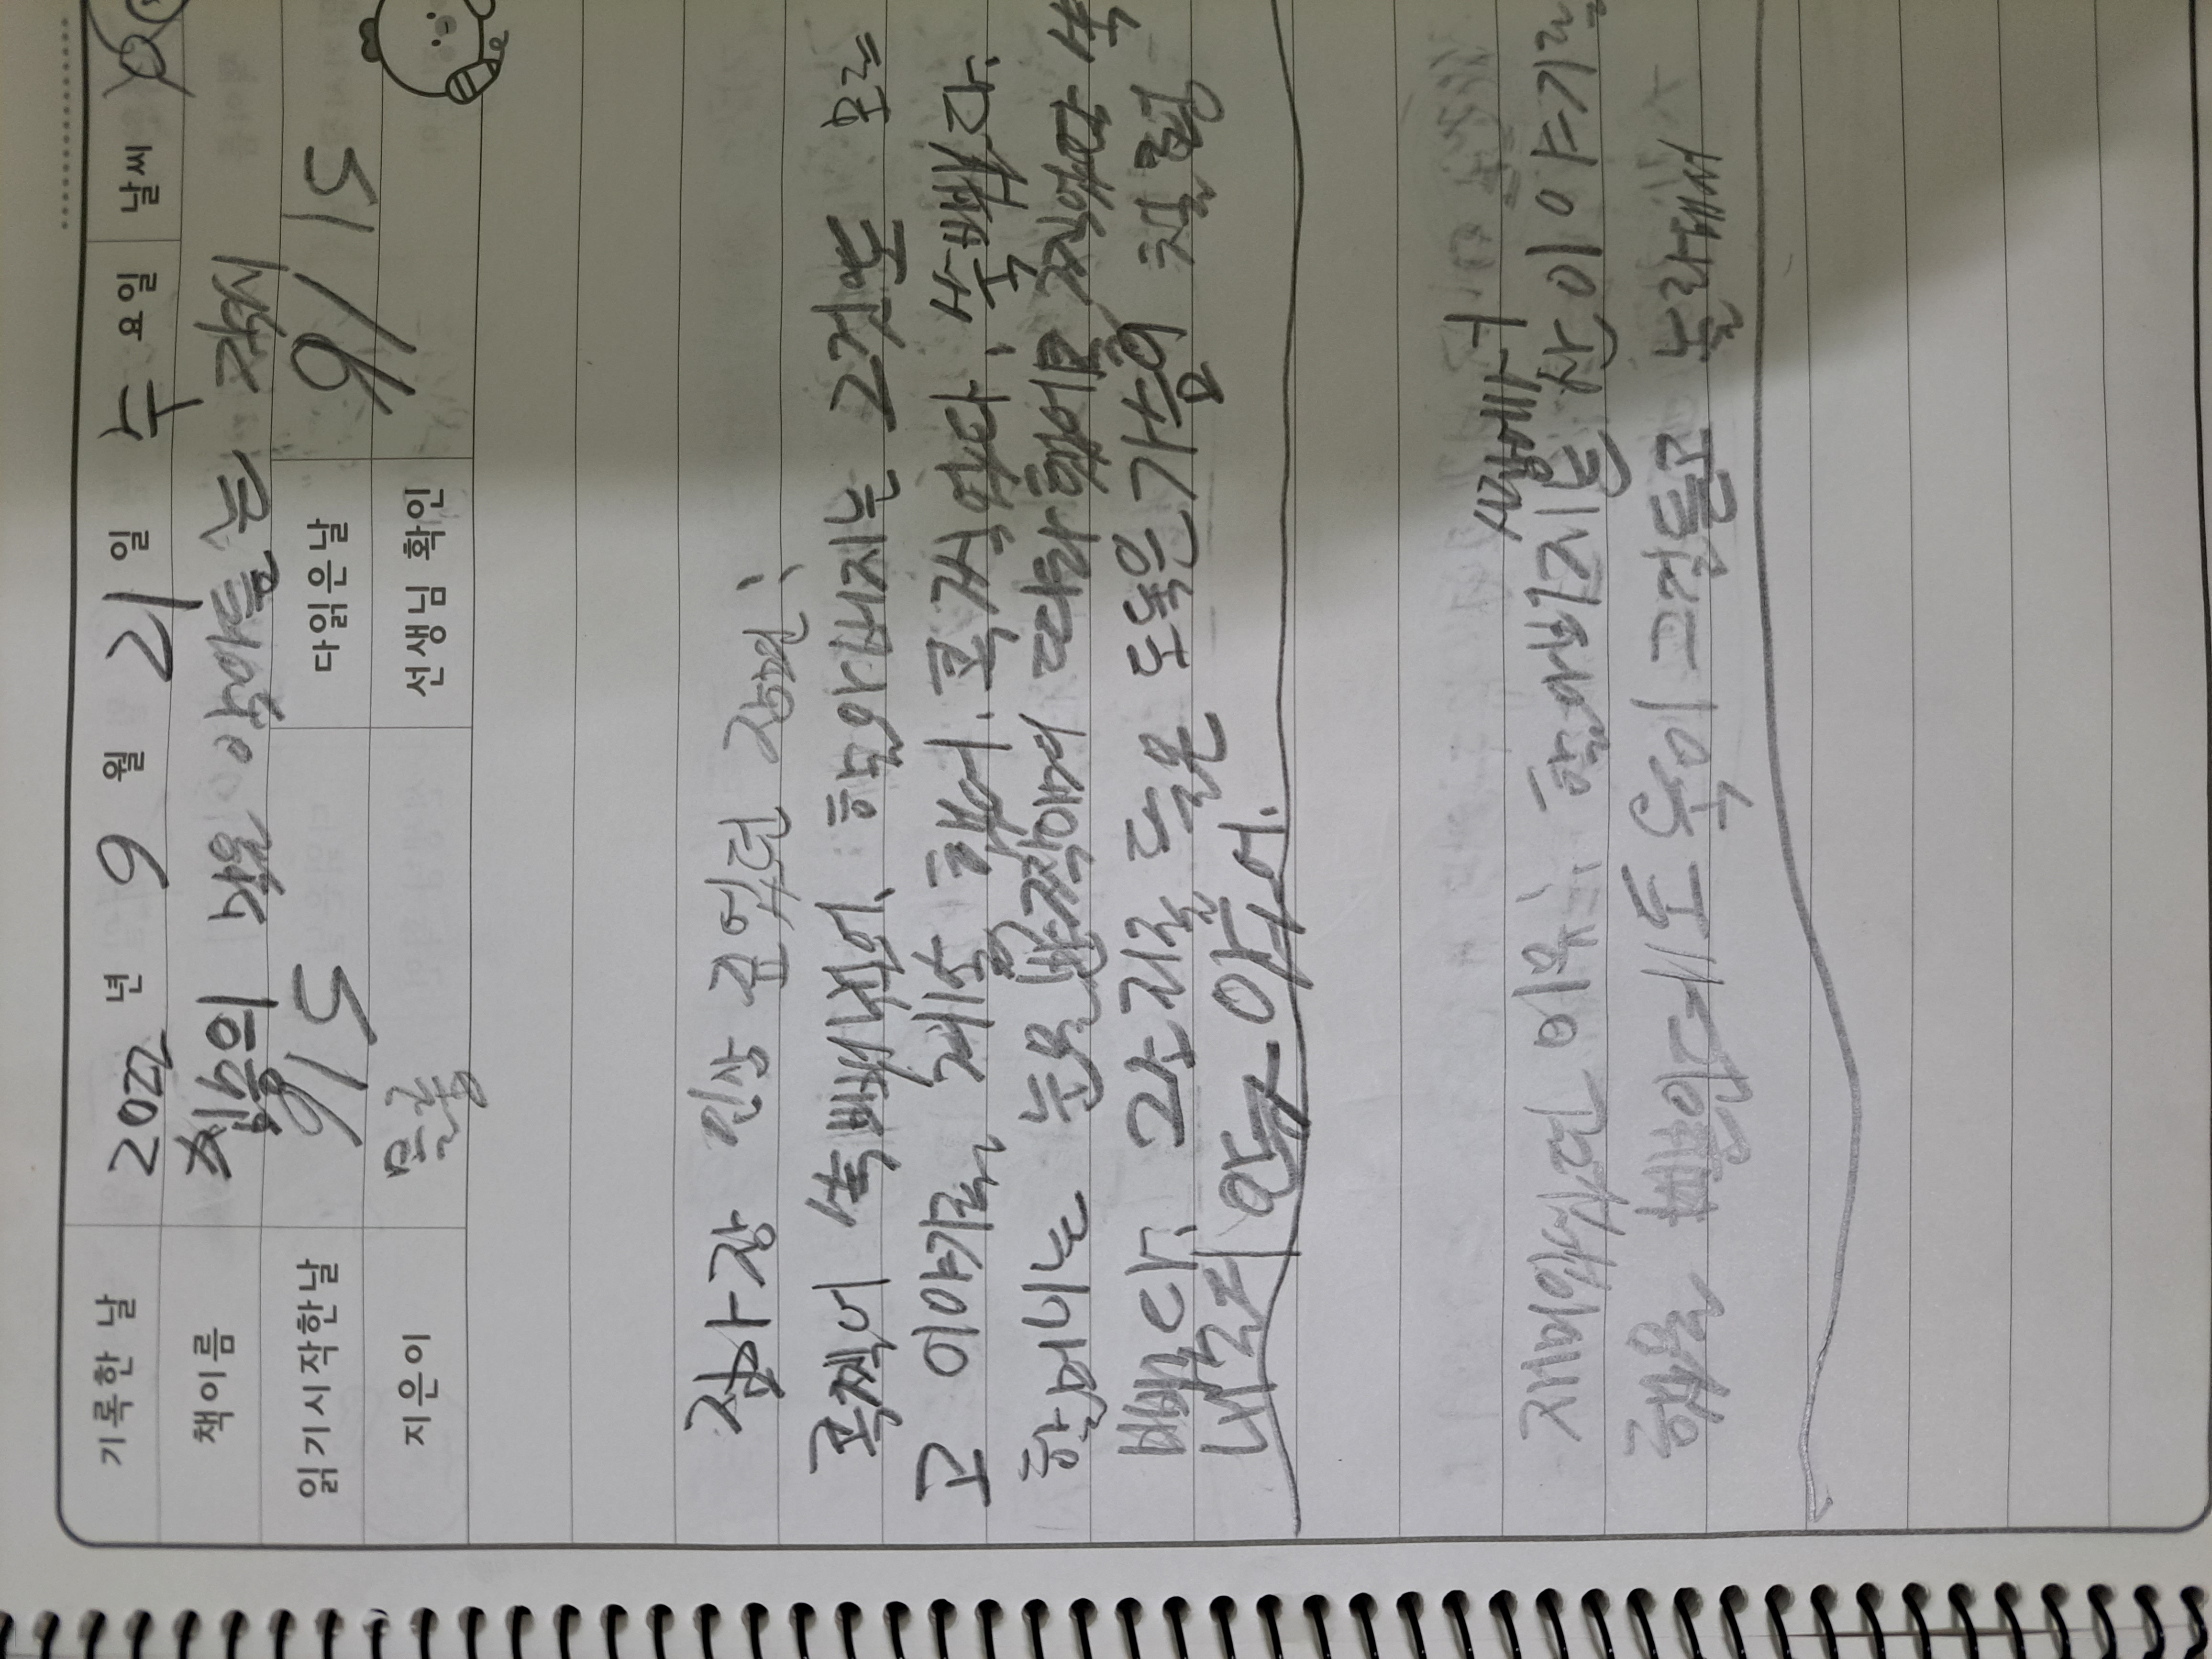 기록한 날 2022 년 9 월 21 일 수 요일 날씨
책이름 짐승의 작은 악아듣는 각시
읽기시작한날 9/5 다읽은날 9/15
지은이 몰룸 선생님 확인
가장 인상 깊었던 장면:
콕찍어 쏙빼냈어. 할아버지는 그것도 모르
고 이야기를 계속 했어. 콕 찍었다, 쏙뺐다.
할머니는 눈을 반짝이며 따라했어 찍었다 쏙
뺐다. 그소리를 들은 도둑은 가슴이 철렁
내 아
시장에서
재미있었던 이유: 할아버지는 산 이야기를
했을 뿐인데 도둑이 그걸듣고 놀라해서